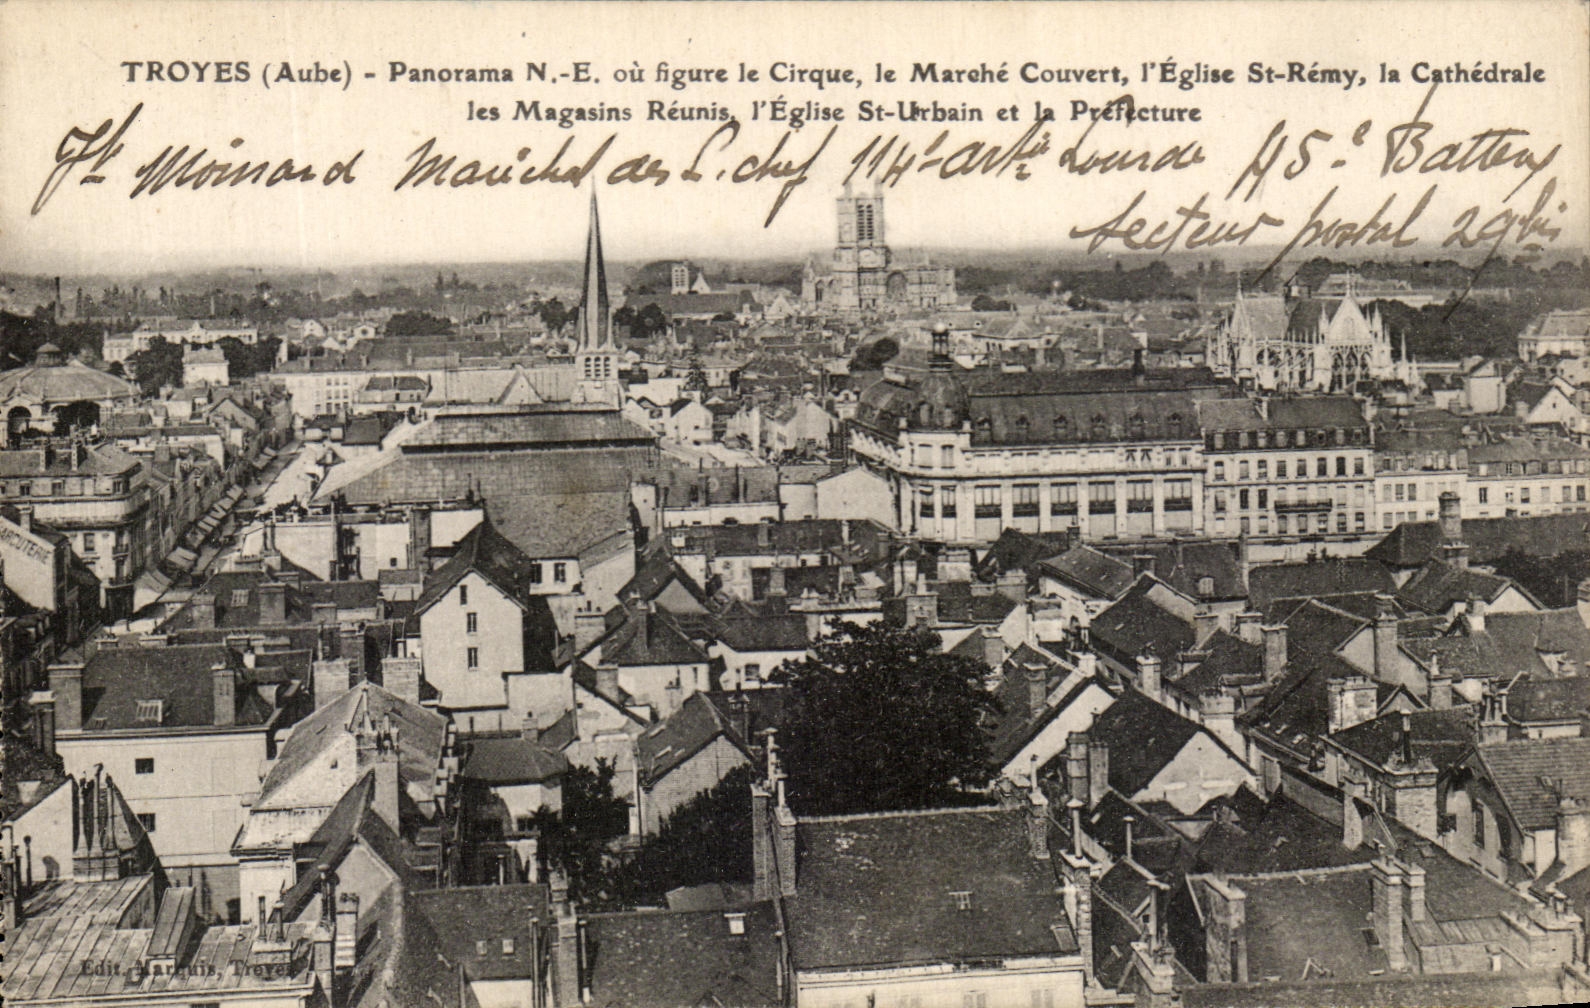 TROYES (Aube) - Panorama N.-E. où figure le Cirque, le Marché Couvert, l'Église St-Rémy, la Cathédrale
les Magasins Réunis, l'Église St-Urbain et la Préfecture
Moinard Maréchal des L. chef 114e artie Lourde 45e Battery
Secteur postal
CUTERIE
Edit. Marquis, Troyes